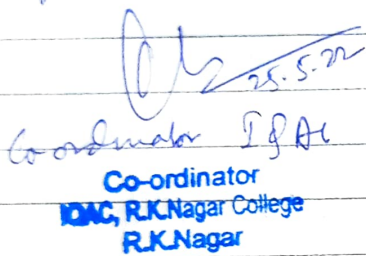 25.5.22
Co-ordinator IQAC
Co-ordinator
IQAC, R.K.Nagar College
R.K.Nagar